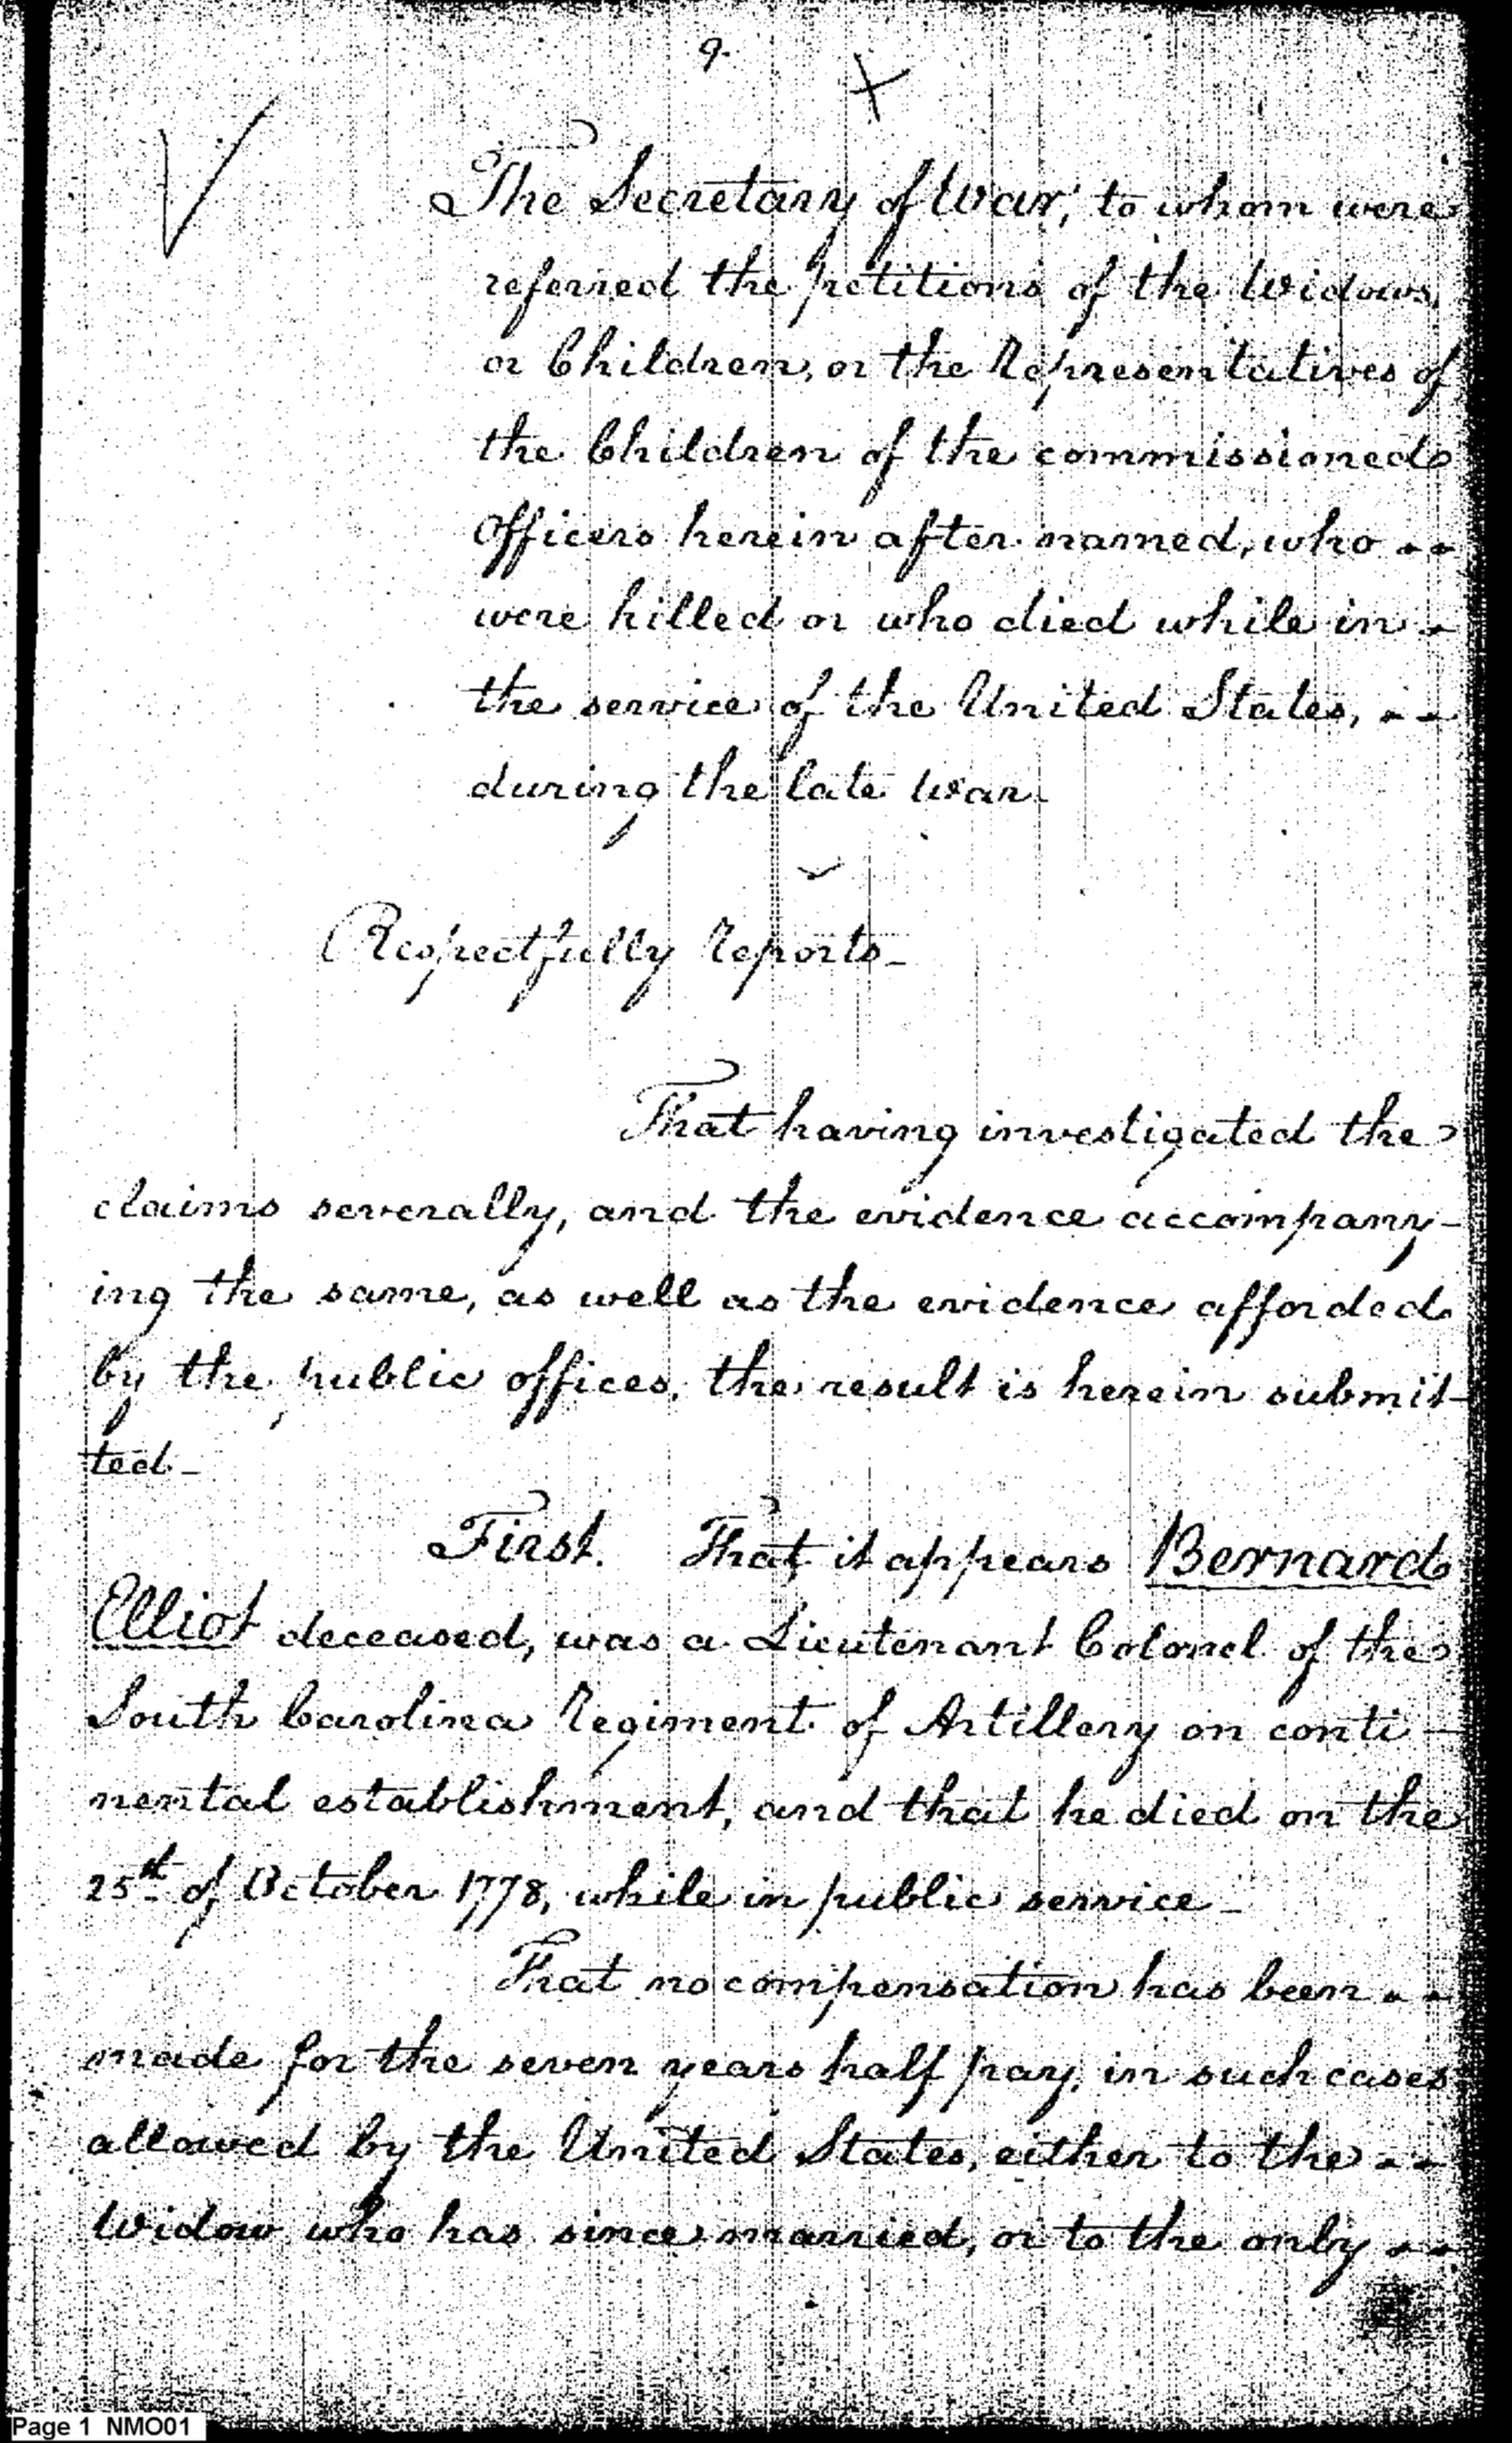 9.
The Secretary of War, to whom were
referred the petitions of the Widows,
or Children, or the Representatives of
the Children of the commissioned
Officers herein after named, who --
were killed or who died while in -
the service of the United States, --
during the late War.
Respectfully Reports_
That having investigated the
claims severally, and the evidence accompany-
ing the same, as well as the evidence afforded
by the public offices, the result is herein submit-
ted_
First. That it appears Bernard
Elliot deceased, was a Lieutenant Colonel of the
South Carolina Regiment of Artillery on conti-
nental establishment, and that he died on the
25th of October 1778, while in public service_
That no compensation has been --
made for the seven years half pay, in such cases
allowed by the United States, either to the --
Widow who has since married, or to the only --
Page 1 NMO01